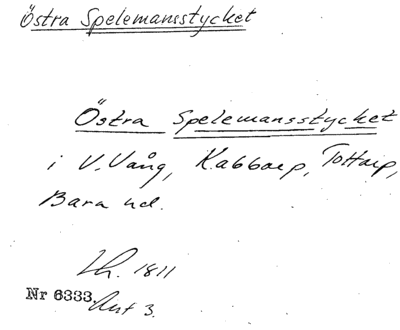 Östra Spelemansstycket
Östra Spelemansstycket
i V. Vång, Kabbarp, Tottarp,
Bara hd.
Lh. 1811
Nr 6333. Akt 3.